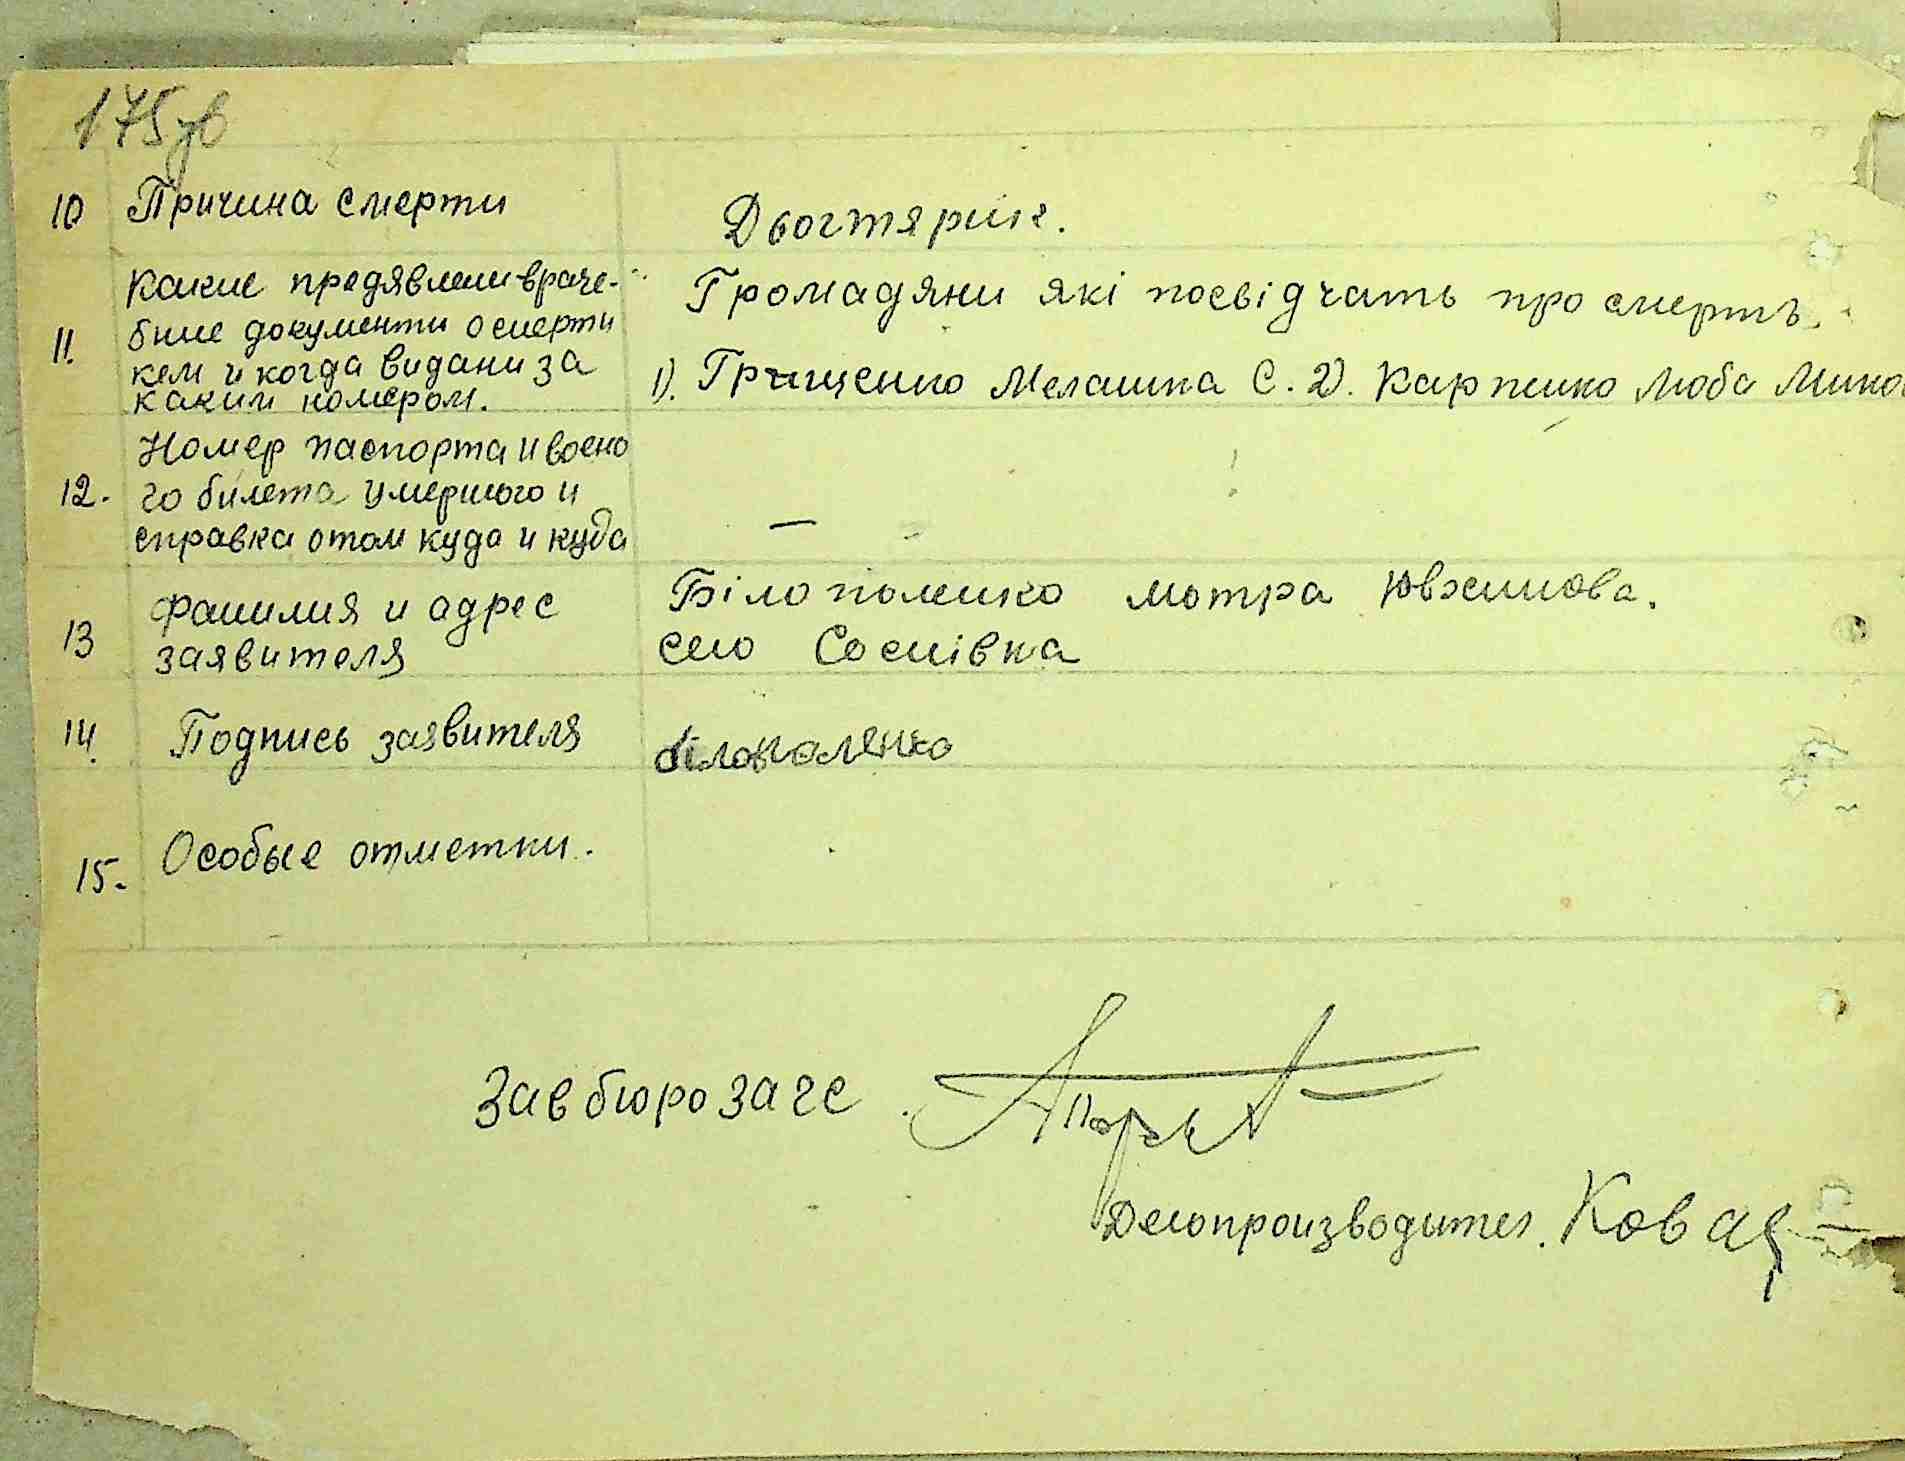 175
10 Причина смерти
Двогтярик.
11. Какие предявлени враче-
бние документи о смерти
кем и когда видани за
каким номером.
Громадяни які посвідчать про смерть.
1). Грищенко Мелашка С. 2). Карпенко Люба Мико
12. Номер паспорта и воено
го билета умершого и
справка о том куда и куда
—
13 Фамилия и адрес
заявителя
Білополенко мотра Ювхимова.
село Соснівка
14. Подпись заявителя
білополенко
15. Особые отметки.
Завбюро загс
Делопроизводител. Ковал